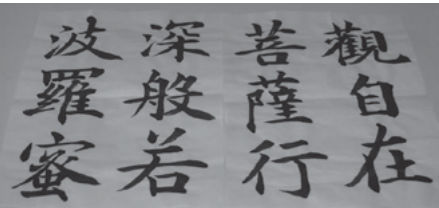 觀自在
菩薩行
深般若
波羅蜜